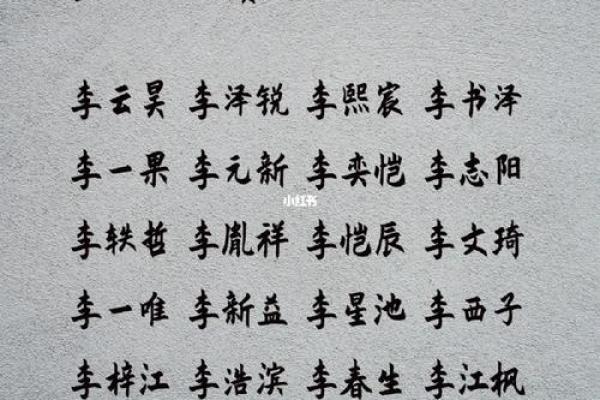 李云昊 李泽锐 李熙宸 李书泽
李一果 李元新 李奕恺 李志阳
小红书
李轶哲 李胤祥 李恺辰 李文琦
李一唯 李新益 李星池 李西子
李梓江 李浩滨 李春生 李江枫